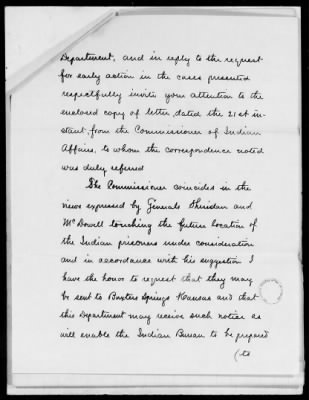 Department, and in reply to the request
for early action in the cases presented
respectfully invite your attention to the
enclosed copy of letter, dated the 21st in-
stant, from the Commissioner of Indian
Affairs, to whom the correspondence noted
was duly referred
The Commissioner coincided in the
views expressed by Generals Sheridan and
McDowell touching the future location of
the Indian prisoners under consideration
and in accordance with his suggestion I
have the honor to request that they may
be sent to Baxters Springs Kansas and that
this Department may receive such notice as
will enable the Indian Bureau to be prepared
(to